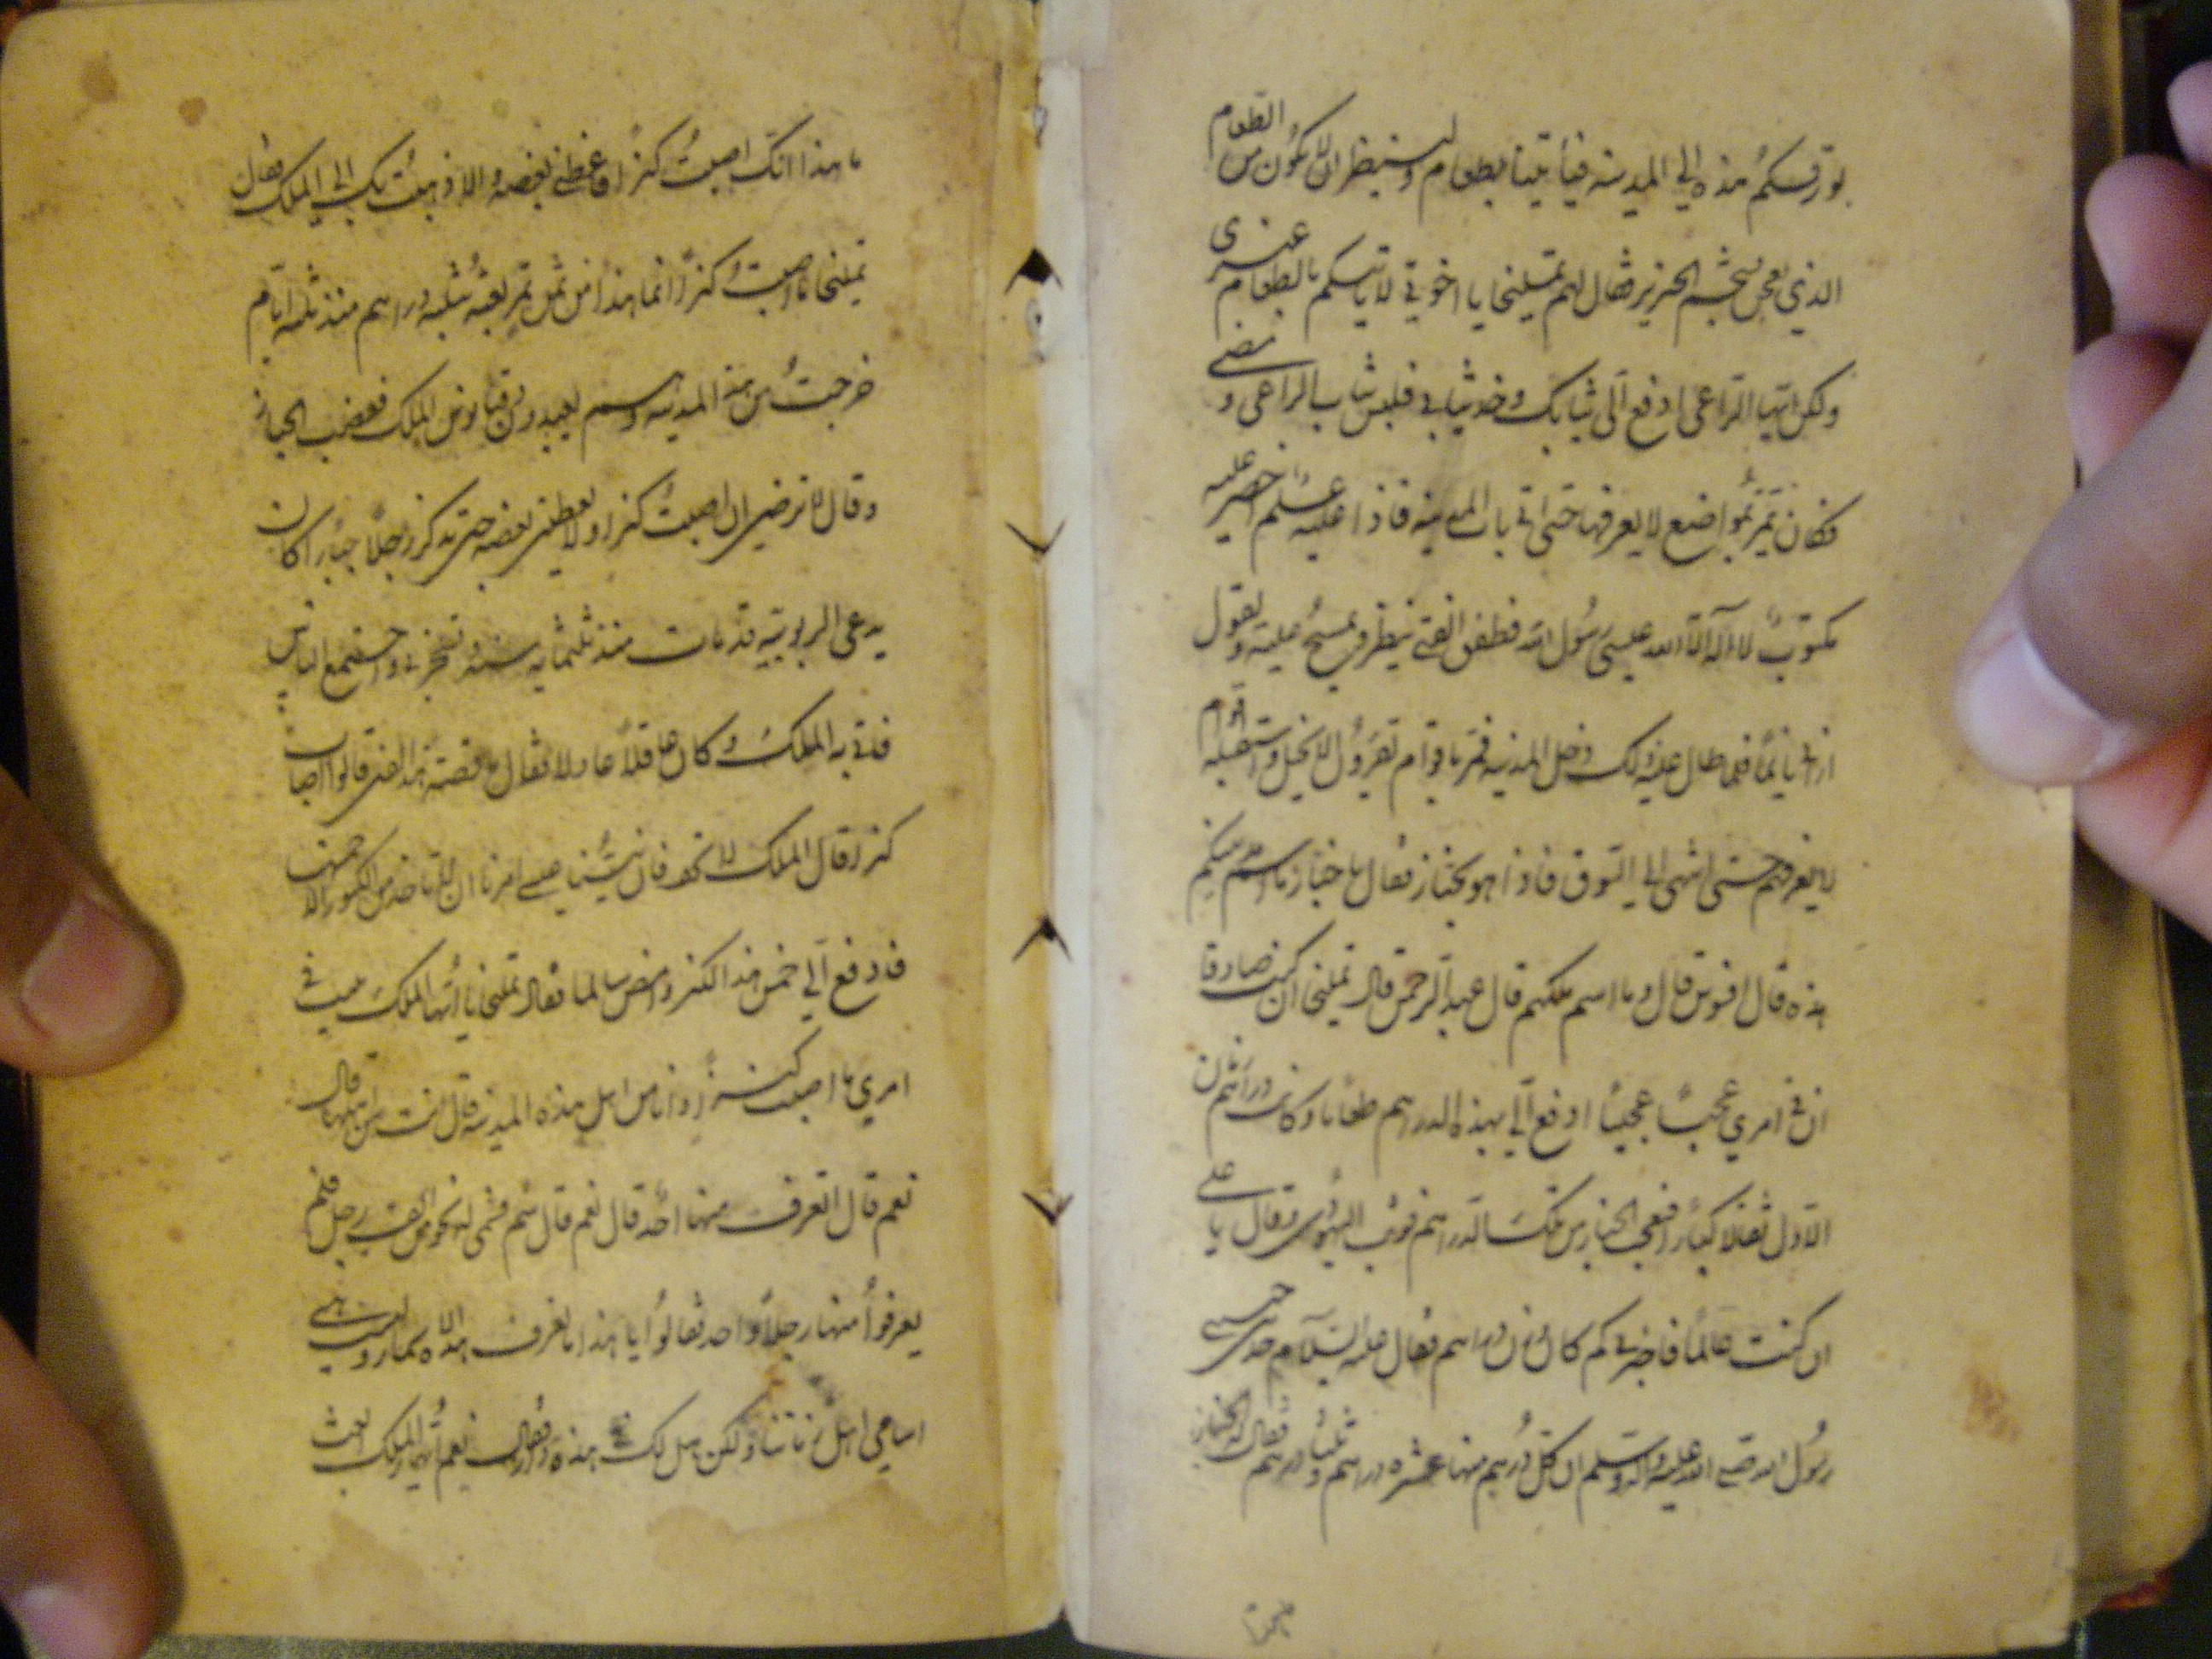 بورقكم هذه الى المدينة فيأتينا بطعام ولينظر ان لا يكون من الطعام
الذي يعجن بشحم الخنزير فقال لهم تمليخا يا اخوتي لا ياتيكم بالطعام غيري
ولكن ايها الراعي ادفع الي ثيابك وخذ ثيابي فلبس ثياب الراعي و مضى
فكان يمر بمواضع لا يعرفها حتى اتى باب المدينة فاذا عليه علم اخضر عليه
مكتوب لا اله الا الله عيسى رسول الله فطفق الفتى ينظر ويمسح عينيه ويقول
اراني نائما فلما طال عليه ذلك دخل المدينة فمر باقوام يقرؤن الانجيل واستقبله اقوام
لا يعرفهم حتى انتهى الى السوق فاذا هو بخباز فقال يا خباز ما اسم مدينتكم
هذه قال افسوس قال وما اسم ملككم قال عبد الرحمن قال تمليخا ان كنت صادقا
ان في امري عجبا عجيبا ادفع الي بهذه الدراهم طعاما وكانت دراهم
الاول ثقالا كبارا فعجب الخباز من تلك الدراهم فوثب اليهودي فقال يا علي
ان كنت عالما فاخبرني كم كان وزن دراهم فقال عليه السلام حدثني حبيبي
رسول الله صلى الله عليه وآله وسلم ان كل درهم منها عشرة دراهم وثلثا درهم فقال له الخباز
يا هذا انك اصبت كنزا فاعطني بعضه والا ذهبت بك الى الملك فقال
تمليخا ما اصبت كنزا انما هذا من ثمن تمر بعته بثلثة دراهم منذ ثلثة ايام
خرجت من هذه المدينة وهم يعبدون دقيانوس الملك فغضب الخباز
وقال لا ترضى ان اصبت كنزا ولا تعطيني بعضه حتى تذكر رجلا جبارا كان
يدعي الربوبية قد مات منذ ثلثمائة سنة واجتمع الناس
فاتي به الملك وكان عاقلا عادلا فقال ما قصة هذا الفتى قالوا اصاب
كنزا قال الملك لا تخف فان نبينا عيسى امرنا ان لا ناخذ من الكنوز الا خمسها
فادفع الي خمس هذا الكنز وامض سالما فقال تمليخا يا ايها الملك تثبت في
امري ما اصبت كنزا وانا من اهل هذه المدينة قال انت من اهلها قال
نعم قال اتعرف منها احدا قال نعم قال سم فسمى له نحو من الف رجل فلم
يعرفوا منها رجلا واحدا فقالوا يا هذا ما نعرف هذه الاسماء وليست هي
اسامي اهل زماننا ولكن هل لك في هذه دار فقال نعم ايها الملك ابعث